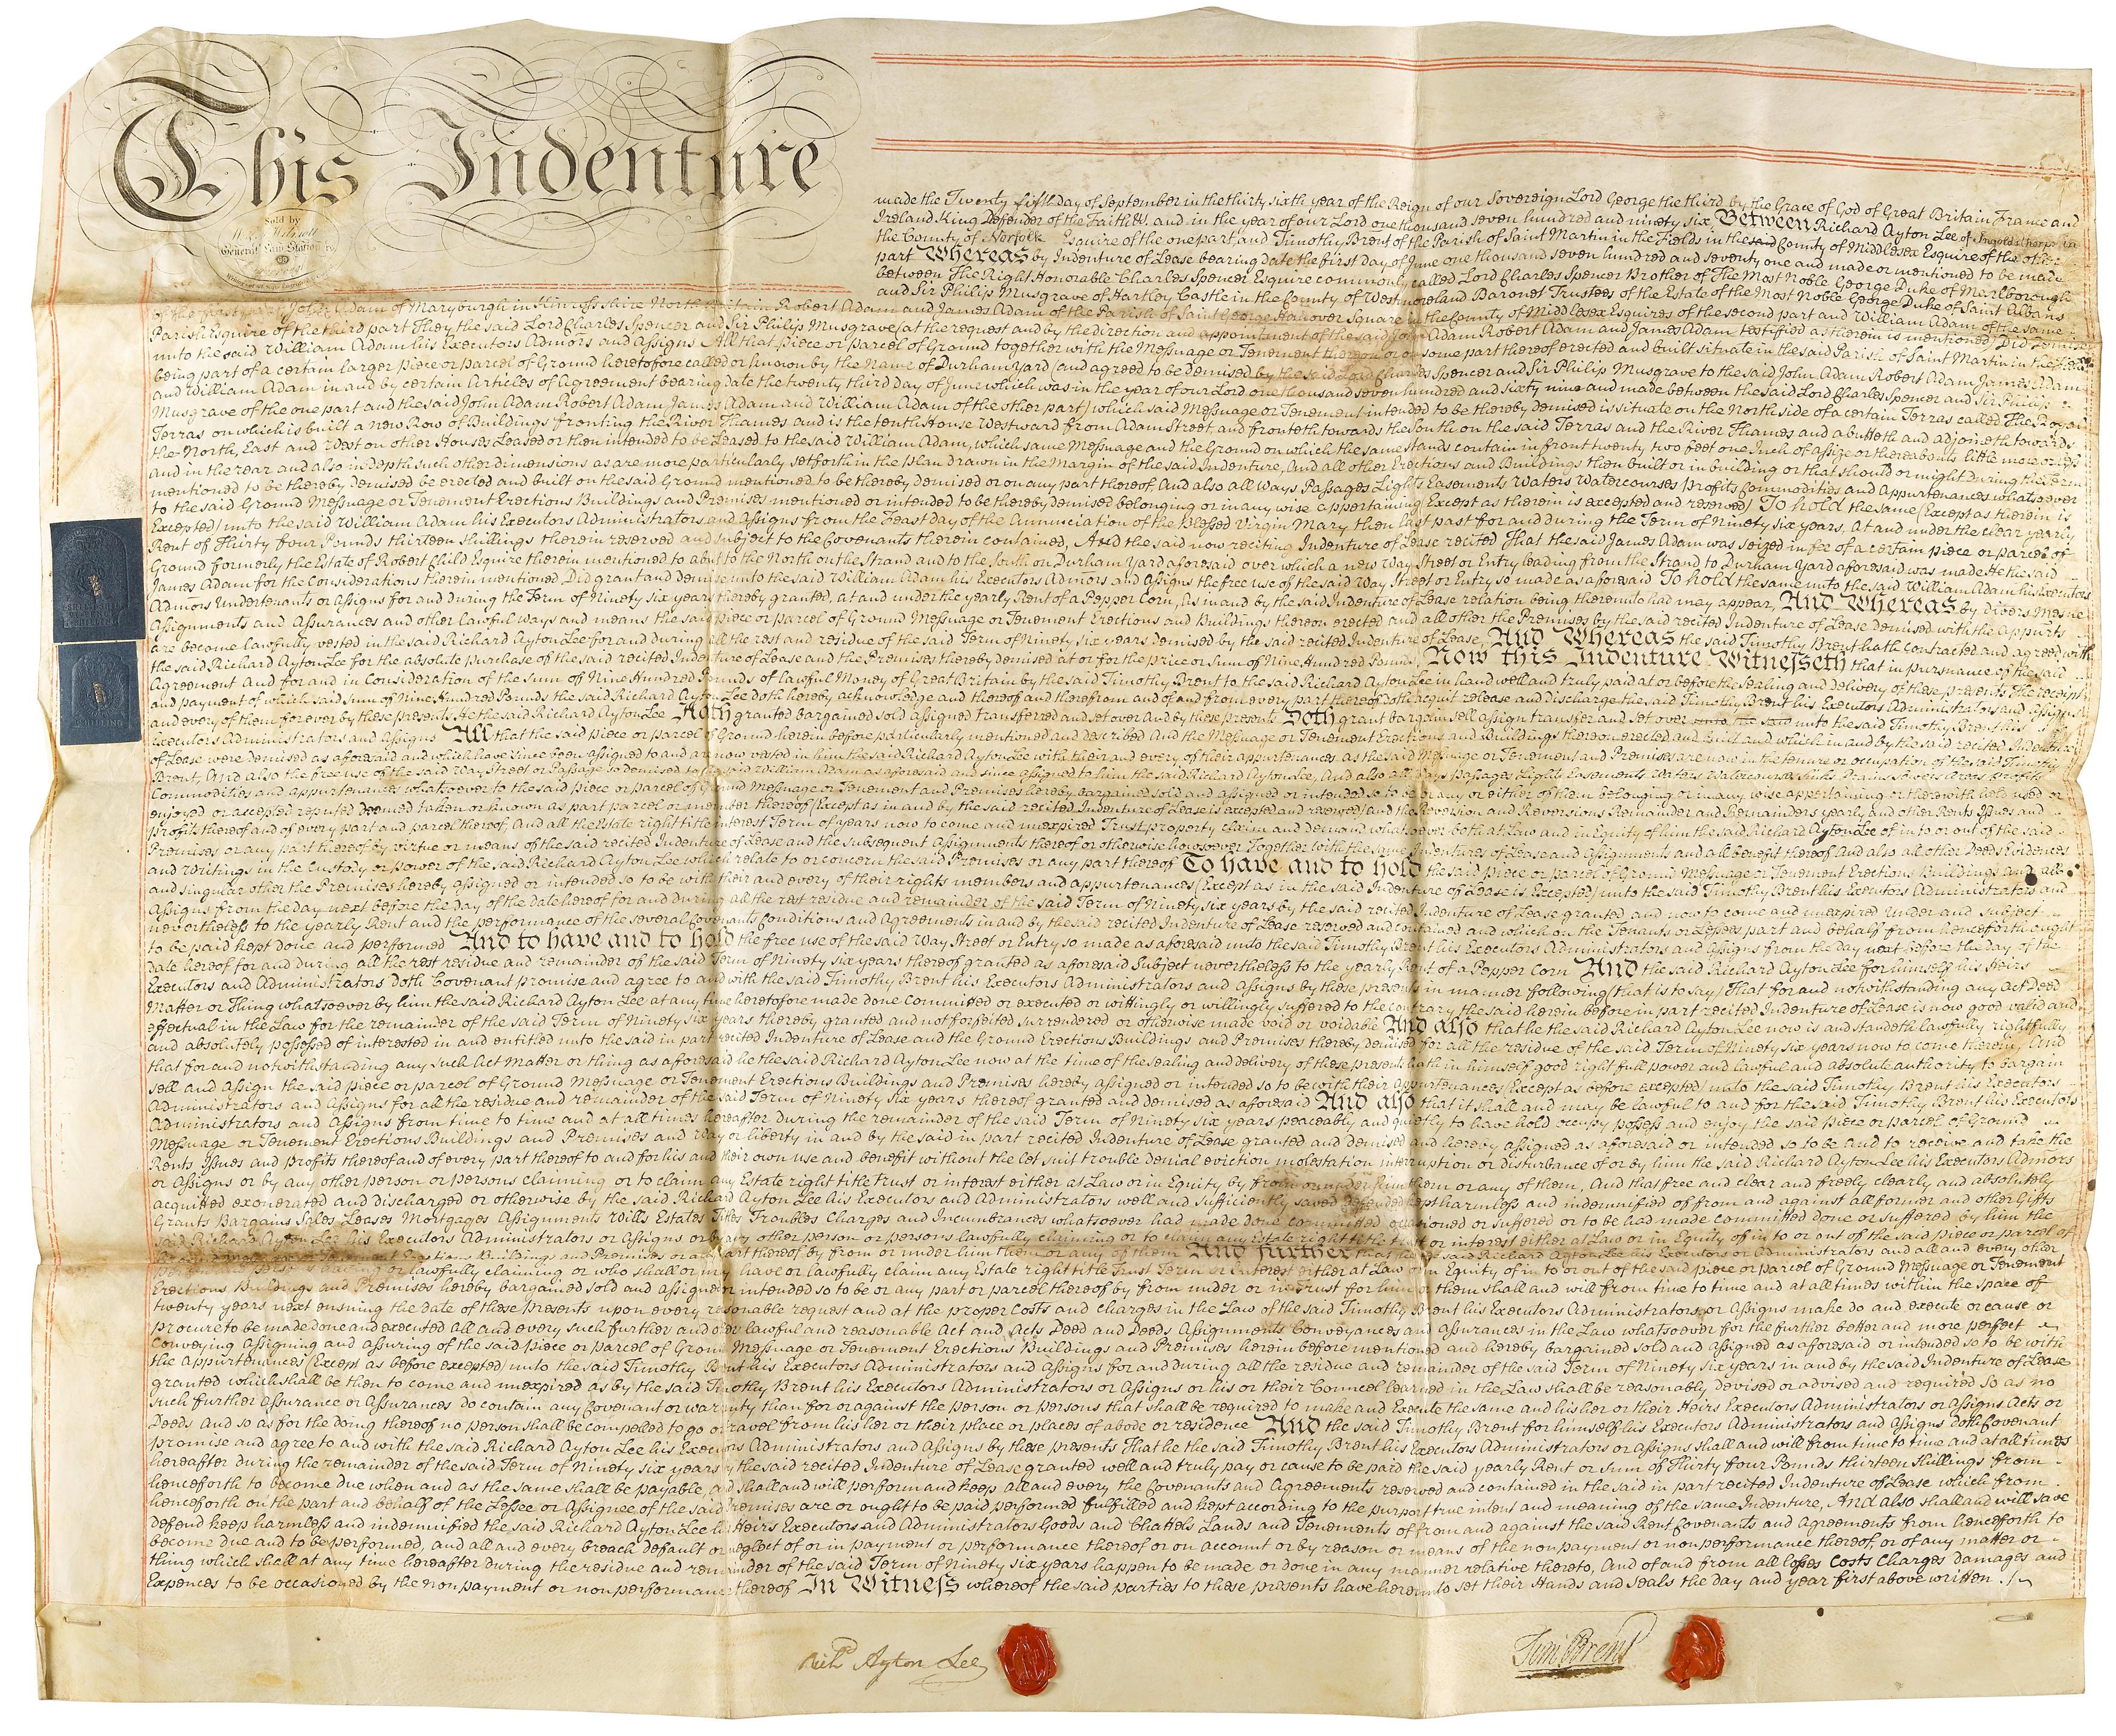 This Indenture
Sold by
General Law Stationers
made the Twenty fifth Day of September in the thirty sixth year of the Reign of our Sovereign Lord George the third by the Grace of God of Great Britain France and
Ireland King Defender of the Faith &c. and in the year of our Lord one thousand seven hundred and ninety six Between Richard Ayton Lee of Ingoldisthorpe in
the County of Norfolk Esquire of the one part, and Timothy Brent of the Parish of Saint Martin in the Fields in the said County of Middlesex Esquire of the other
part Whereas by Indenture of Lease bearing date the first day of June one thousand seven hundred and seventy one and made or mentioned to be made
between The Right Honorable Charles Spencer Esquire commonly called Lord Charles Spencer Brother of The Most Noble George Duke of Marlborough
and Sir Philip Musgrave of Hartley Castle in the County of Westmoreland Baronet Trustees of the Estate of the Most Noble George Duke of Saint Albans
of the first part John Adam of Maryburgh in Kinross shire North Britain Robert Adam and James Adam of the Parish of Saint George Hanover Square in the County of Middlesex Esquires of the second part and William Adam of the same
Parish Esquire of the third part They the said Lord Charles Spencer and Sir Philip Musgrave (at the request and by the direction and appointment of the said John Adam Robert Adam and James Adam testified as therein is mentioned) Did Demise
unto the said William Adam his Executors Admors and Assigns All that piece or parcel of Ground together with the Messuage or Tenement thereon or on some part thereof erected and built situate in the said Parish of Saint Martin in the Fields
being part of a certain larger piece or parcel of Ground heretofore called or known by the Name of Durham Yard (and agreed to be demised by the said Lord Charles Spencer and Sir Philip Musgrave to the said John Adam Robert Adam James Adam
and William Adam in and by certain Articles of Agreement bearing date the twenty third day of June which was in the year of our Lord one thousand seven hundred and sixty nine and made between the said Lord Charles Spencer and Sir Philip
Musgrave of the one part and the said John Adam Robert Adam James Adam and William Adam of the other part) which said Messuage or Tenement intended to be thereby demised is situate on the North side of a certain Terras called The Royal
Terras on which is built a new Row of Buildings fronting the River Thames and is the tenth House Westward from Adam Street, and fronteth towards the South on the said Terras and the River Thames and abutteth and adjoineth towards
the North, East and West on other Houses Leased or then intended to be Leased to the said William Adam, which same Messuage and the Ground on which the same stands contain in front twenty two feet one Inch of assize or thereabouts little more or less
and in the rear and also in depth such other dimensions as are more particularly set forth in the plan drawn in the Margin of the said Indenture, And all other Erections and Buildings then built or in building or that should or might During the Term
mentioned to be thereby demised be erected and built on the said Ground mentioned to be thereby demised or on any part thereof. And also all Ways Passages Lights Easements Waters Watercourses Profits Commodities and Appurtenances whatsoever
to the said Ground Messuage or Tenement Erections Buildings and Premises mentioned or intended to be thereby demised belonging or in any wise appertaining (Except as therein is excepted and reserved) To hold the same (Except as therein is
Excepted) unto the said William Adam his Executors Administrators and Assigns from the Feast day of the Annunciation of the Blessed Virgin Mary then last past for and during the Term of Ninety six years, At and under the clear yearly
Rent of Thirty four Pounds thirteen shillings therein reserved and subject to the Covenants therein contained, And the said now reciting Indenture of Lease recited That the said James Adam was seized in fee of a certain piece or parcel of
Ground formerly the Estate of Robert Child Esquire therein mentioned to abut to the North on the Strand and to the South on Durham Yard aforesaid over which a new Way Street or Entry leading from the Strand to Durham Yard aforesaid was made He the said
James Adam for the Considerations therein mentioned Did grant and demise unto the said William Adam his Executors Admors and Assigns the free use of the said Way Street or Entry so made as aforesaid To hold the same unto the said William Adam his Executors
Admors Undertenants or Assigns for and during the Term of Ninety six years thereby granted, at and under the yearly Rent of a Pepper Corn, As in and by the said Indenture of Lease relation being thereunto had may appear, And Whereas by Divers Mesne
Assignments and Assurances and other lawful ways and means the said piece or parcel of Ground Messuage or Tenement Erections and Buildings thereon erected and all other the Premises by the said recited Indenture of Lease demised with the Appurts
are become lawfully vested in the said Richard Ayton Lee for and during all the rest and residue of the said Term of Ninety six years demised by the said recited Indenture of Lease, And Whereas the said Timothy Brent hath Contracted and agreed with
the said Richard Ayton Lee for the absolute purchase of the said recited Indenture of Lease and the Premises thereby demised at or for the price or Sum of Nine Hundred Pounds, Now this Indenture Witnesseth that in pursuance of the said
Agreement And for and in Consideration of the Sum of Nine Hundred Pounds of lawful Money of Great Britain by the said Timothy Brent to the said Richard Ayton Lee in hand well and truly paid at or before the sealing and delivery of these presents The receipt
and payment of which said Sum of Nine Hundred Pounds the said Richard Ayton Lee doth hereby acknowledge and thereof and therefrom and of and from every part thereof doth acquit release and discharge the said Timothy Brent his Executors Administrators and Assigns
and every of them for ever by these presents He the said Richard Ayton Lee Hath granted bargained sold assigned transferred and set over And by these presents Doth grant bargain sell assign transfer and set over unto the said unto the said Timothy Brent his
Executors Administrators and Assigns All that the said piece or parcel of Ground herein before particularly mentioned and described And the Messuage or Tenement Erections and Buildings thereon erected and built and which in and by the said recited Indenture
of Lease were demised as aforesaid and which have since been assigned to and are now vested in him the said Richard Ayton Lee with their and every of their appurtenances As the said Messuage or Tenement and Premises are now in the tenure or occupation of the said Timothy
Brent, And also the free use of the said Way Street or Passage so demised to the said William Adam as aforesaid and since assigned to him the said Richard Ayton Lee, And also all Ways Passages Lights Easements Waters Watercourses Sinks Drains Areas profits
Commodities and appurtenances whatsoever to the said piece or parcel of Ground Messuage or Tenement and Premises hereby bargained sold and assigned or intended so to be or any or either of them belonging or in any wise appertaining or therewith held used or
enjoyed or accepted reputed deemed taken or known as part parcel or member thereof (Except as in and by the said recited Indenture of Lease is excepted and reserved) and the Reversion and Reversions Remainder and Remainders yearly and other Rents Issues and
profits thereof and of every part and parcel thereof, And all the Estate right title interest Term of years now to come and unexpired Trust property claim and demand whatsoever both at Law and in Equity of him the said Richard Ayton Lee of in to or out of the said
Premises or any part thereof by virtue or means of the said recited Indenture of Lease and the subsequent Assignments thereof or otherwise howsoever Together with the same Indentures of Lease and Assignments and all benefit thereof And also all other Deeds Evidences
and Writings in the Custody or power of the said Richard Ayton Lee which relate to or concern the said Premises or any part thereof To have and to hold the said piece or parcel of Ground Messuage or Tenement Erections Buildings and all
and singular other the Premises hereby assigned or intended so to be with their and every of their rights members and appurtenances (Except as in the said Indenture of Lease is Excepted) unto the said Timothy Brent his Executors Administrators and
Assigns from the day next before the day of the date hereof for and during all the rest residue and remainder of the said Term of Ninety six years by the said recited Indenture of Lease granted and now to come and unexpired Under and subject
nevertheless to the yearly Rent and the performance of the several Covenants Conditions and Agreements in and by the said recited Indenture of Lease reserved and contained and which on the Tenants or Lessees part and behalf from henceforth ought
to be paid kept done and performed And to have and to hold the free use of the said Way Street or Entry so made as aforesaid unto the said Timothy Brent his Executors Administrators and Assigns from the day next before the day of the
date hereof for and during all the rest residue and remainder of the said Term of Ninety six years thereof granted as aforesaid Subject nevertheless to the yearly Rent of a Pepper Corn And the said Richard Ayton Lee for himself his Heirs
Executors and Administrators doth Covenant promise and agree to and with the said Timothy Brent his Executors Administrators and Assigns by these presents in manner following (that is to say) That for and notwithstanding any Act Deed
Matter or Thing whatsoever by him the said Richard Ayton Lee at any time heretofore made done committed or executed or wittingly or willingly suffered to the contrary the said herein before in part recited Indenture of Lease is now good valid and
effectual in the Law for the remainder of the said Term of Ninety six years thereby granted and not forfeited surrendered or otherwise made void or voidable And also that he the said Richard Ayton Lee now is and standeth lawfully rightfully
and absolutely possessed of interested in and entitled unto the said in part recited Indenture of Lease and the Ground Erections Buildings and Premises thereby demised for all the residue of the said Term of Ninety six years now to come therein, And
that for and notwithstanding any such Act Matter or thing as aforesaid he the said Richard Ayton Lee now at the time of the sealing and delivery of these presents hath in himself good right full power and lawful and absolute authority to bargain
sell and assign the said piece or parcel of Ground Messuage or Tenement Erections Buildings and Premises hereby assigned or intended so to be with their appurtenances (Except as before excepted) unto the said Timothy Brent his Executors
Administrators and Assigns for all the residue and remainder of the said Term of Ninety six years thereof granted and demised as aforesaid And also that it shall and may be lawful to and for the said Timothy Brent his Executors
Administrators and Assigns from time to time and at all times hereafter during the remainder of the said Term of Ninety six years peaceably and quietly to have hold occupy possess and enjoy the said piece or parcel of Ground
Messuage or Tenement Erections Buildings and Premises and Way or liberty in and by the said in part recited Indenture of Lease granted and demised and hereby assigned as aforesaid or intended so to be and to receive and take the
Rents Issues and profits thereof and of every part thereof to and for his and their own use and benefit without the let suit trouble denial eviction molestation interruption or disturbance of or by him the said Richard Ayton Lee his Executors Admors
or Assigns or by any other person or persons claiming or to claim any Estate right title trust or interest either at Law or in Equity by from or under him them or any of them, And that free and clear and freely clearly and absolutely
acquitted exonerated and discharged or otherwise by the said Richard Ayton Lee his Executors and Administrators well and sufficiently saved defended kept harmless and indemnified of from and against all former and other Gifts
Grants Bargains Sales Leases Mortgages Assignments Wills Estates Titles Troubles Charges and Incumbrances whatsoever had made done committed occasioned or suffered or to be had made committed done or suffered by him the
said Richard Ayton Lee his Executors Administrators or Assigns or by any other person or persons lawfully claiming or to claim any Estate right title trust or interest either at Law or in Equity of in to or out of the said piece or parcel of
Ground Messuage or Tenement Erections Buildings and Premises or any part thereof by from or under him them or any of them And further that he the said Richard Ayton Lee his Executors or Administrators and all and every other
having or lawfully claiming or who shall or may have or lawfully claim any Estate right title Trust Term or Interest either at Law or in Equity of in to or out of the said piece or parcel of Ground Messuage or Tenement
Erections Buildings and Premises hereby bargained sold and assigned or intended so to be or any part or parcel thereof by from under or in Trust for him or them shall and will from time to time and at all times within the space of
twenty years next ensuing the date of these presents upon every reasonable request and at the proper Costs and Charges in the Law of the said Timothy Brent his Executors Administrators or Assigns make do and execute or cause or
procure to be made done and executed all and every such further and other lawful and reasonable Act and Acts Deed and Deeds Assignments Conveyances and Assurances in the Law whatsoever for the further better and more perfect
Conveying Assigning and Assuring of the said piece or parcel of Ground Messuage or Tenement Erections Buildings and Premises herein before mentioned and hereby bargained sold and Assigned as aforesaid or intended so to be with
the appurtenances (Except as before excepted) unto the said Timothy Brent his Executors Administrators and Assigns for and during all the residue and remainder of the said Term of Ninety six years in and by the said Indenture of Lease
granted which shall be then to come and unexpired as by the said Timothy Brent his Executors Administrators or Assigns or his or their Councel learned in the Law shall be reasonably devised or advised and required So as no
such further Assurance or Assurances do contain any Covenant or warranty than for or against the person or persons that shall be required to make and Execute the same and his her or their Heirs Executors Administrators or Assigns Acts or
Deeds And so as for the doing thereof no person shall be compelled to go or travel from his her or their place or places of abode or residence And the said Timothy Brent for himself his Executors Administrators and Assigns Doth Covenant
promise and agree to and with the said Richard Ayton Lee his Executors Administrators and Assigns by these presents That he the said Timothy Brent his Executors Administrators or Assigns shall and will from time to time and at all times
hereafter during the remainder of the said Term of Ninety six years by the said recited Indenture of Lease granted well and truly pay or cause to be paid the said yearly Rent or Sum of Thirty four Pounds thirteen Shillings from
henceforth to become due when and as the same shall be payable, And shall and will perform and keep all and every the Covenants and Agreements reserved and contained in the said in part recited Indenture of Lease which from
henceforth on the part and behalf of the Lessee or Assignee of the said Premises are or ought to be paid performed fulfilled and kept according to the purport true intent and meaning of the same Indenture, And also shall and will save
defend keep harmless and indemnified the said Richard Ayton Lee his Heirs Executors and Administrators Goods and Chattels Lands and Tenements of from and against the said Rent Covenants and Agreements from henceforth to
become due and to be performed, and all and every breach default or neglect of or in payment or performance thereof or on account or by reason or means of the nonpayment or nonperformance thereof, or of any matter or
thing which shall at any time hereafter during the residue and remainder of the said Term of Ninety six years happen to be made or done in any manner relative thereto, And of and from all losses Costs Charges Damages and
Expences to be occasioned by the nonpayment or nonperformance thereof In Witness whereof the said parties to these presents have hereunto set their Hands and Seals the day and year first above written
Richd Ayton Lee
Tim Brent